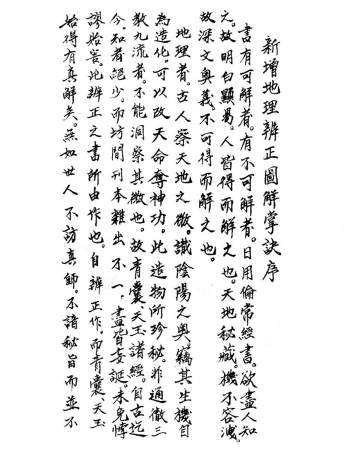 新增地理辨正圖解掌訣序
書有可解者。有不可解者。日用倫常經書。欲盡人知
之。故明白顯易。人皆得而解之也。天地秘藏。機不容洩。
故深文奧義。不可得而解之也。
地理者。古人察天地之微。識陰陽之奧。竊其生機。自
為造化。可以改天命。奪神功。此造物所珍秘。非通徹三
教九流者。不能洞察其微也。故青囊天玉諸經。自古迄
今。知者絕少。而坊間刊本雜出不一。盡皆妄誕。未免悖
謬貽害。此辨正之書所由作也。自辨正作。而青囊天玉
始得有真解矣。無如世人不訪真師。不諳秘旨。而並不